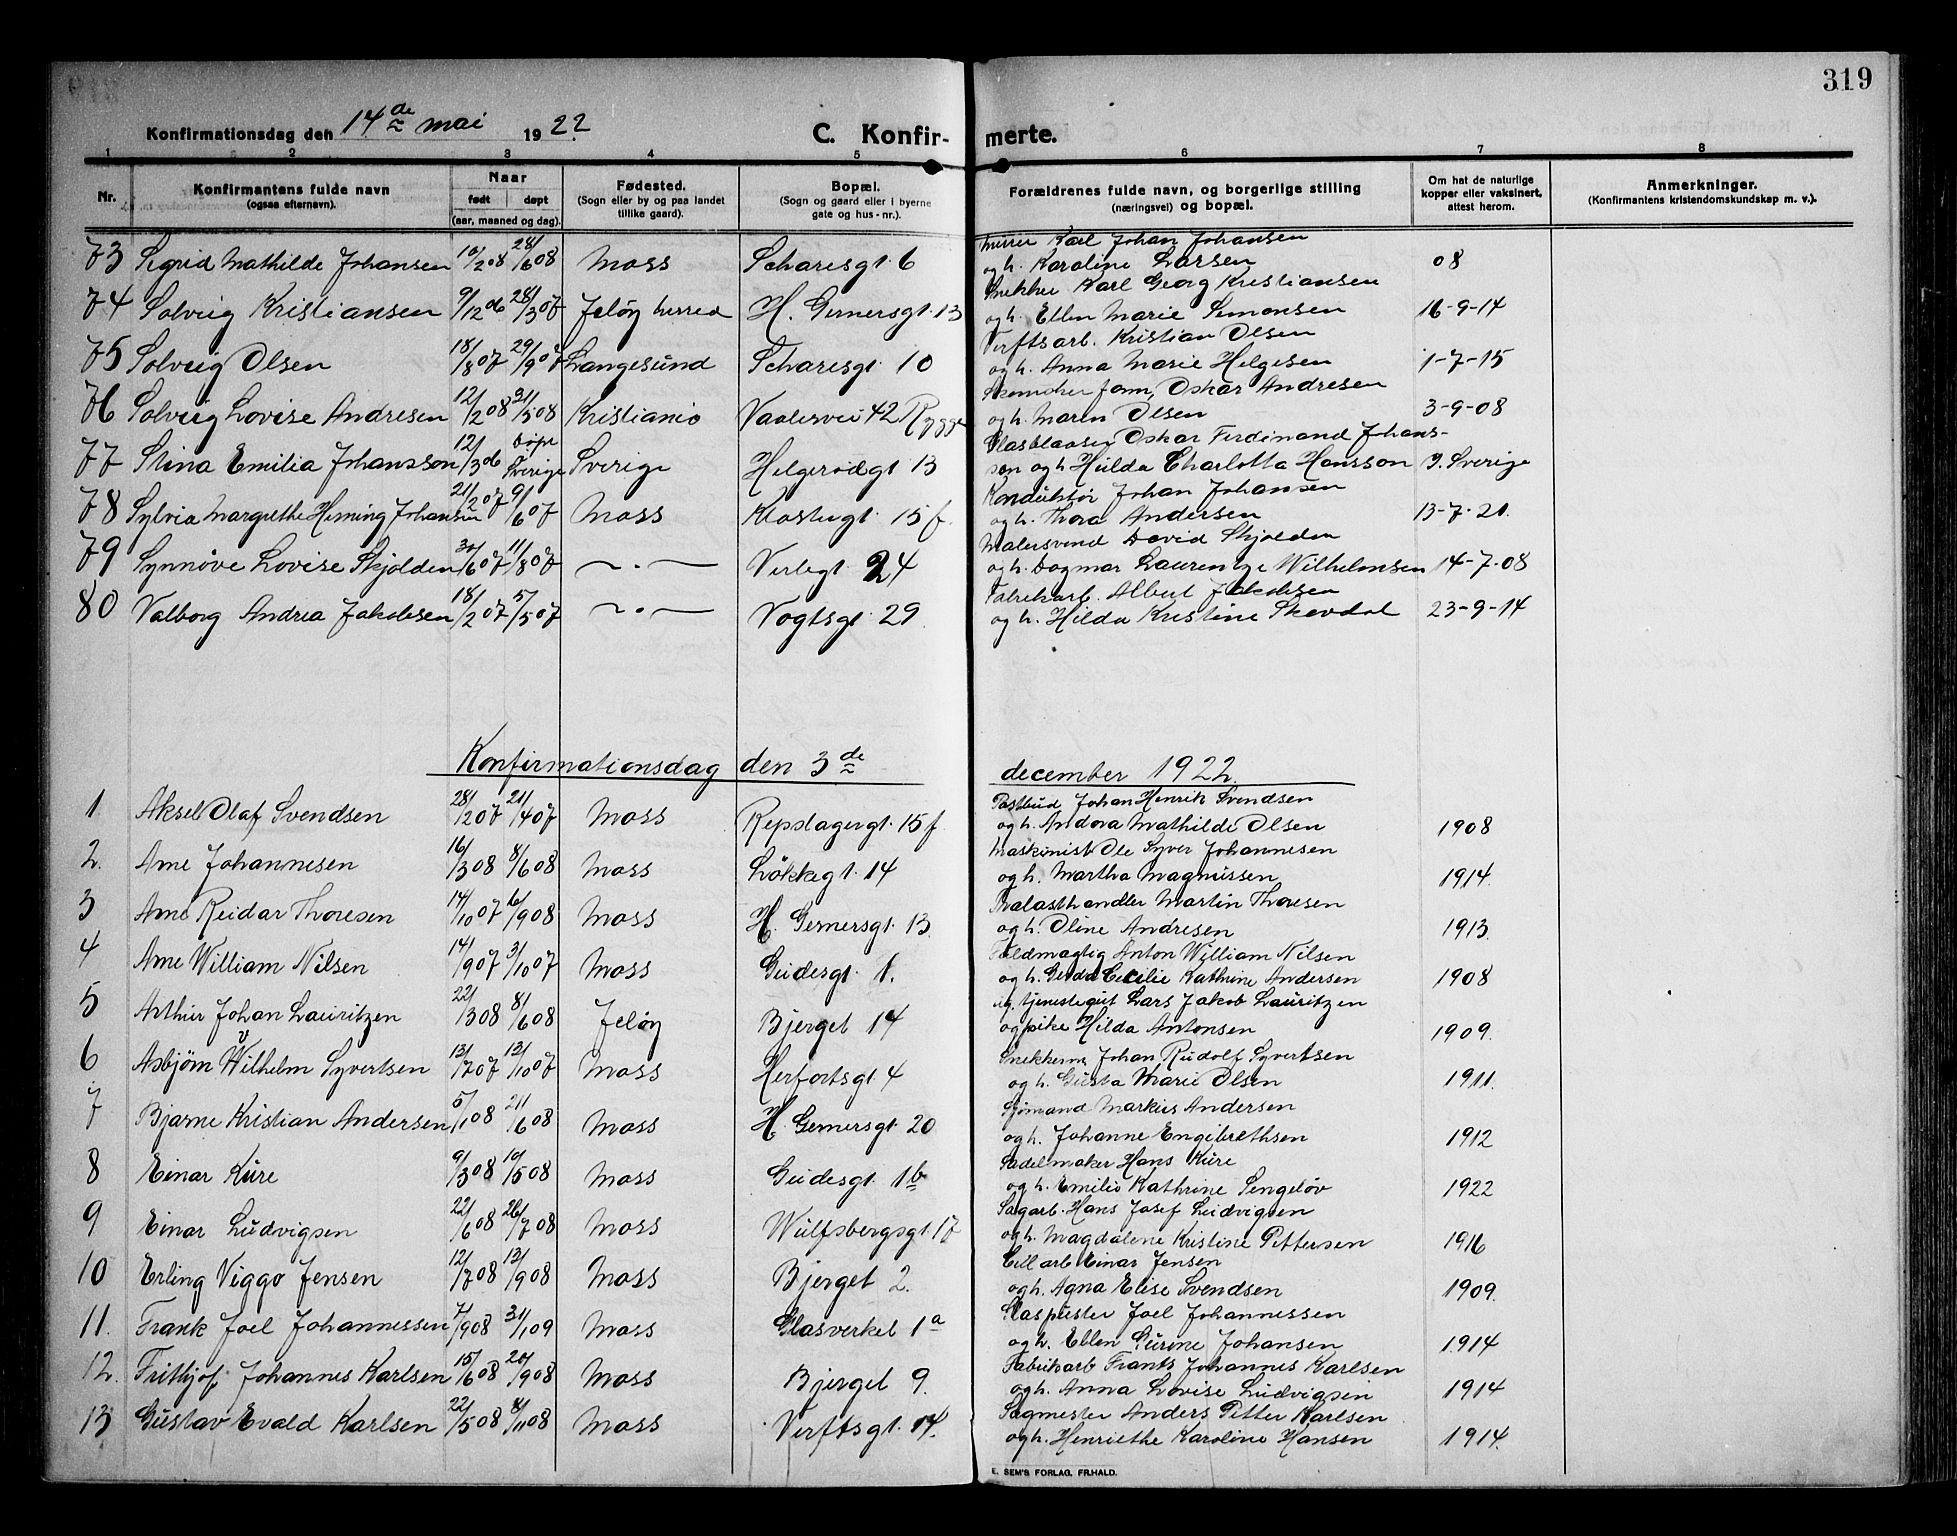 319
Konfirmationsdag den 14de mai 1922.
C. Konfirmerte.
1 2 3 4 5 6 7 8
Nr. Konfirmantens fulde navn (ogsaa efternavn). Naar født døpt (aar, maaned og dag). Fødested. (Sogn eller by og paa landet tillike gaard). Bopæl. (Sogn og gaard eller i byerne gate og hus-nr.). Forældrenes fulde navn, og borgerlige stilling (næringsvei) og bopæl. Om hat de naturlige kopper eller vaksinert, attest herom. Anmerkninger. (Konfirmantens kristendomskundskap m. v.).
73 Sigrid Mathilde Johansen 10/2 08 28/6 08 Moss Scharesgt. 6 Murer Karl Johan Johansen
og h. Karoline Larsen 08
74 Solveig Kristiansen 9/12 06 28/3 07 Jeløy herred H. Gernersgt. 13 Snekker Karl Georg Kristiansen
og h. Ellen Marie Simonsen 16-9-14
75 Solveig Olsen 18/8 07 29/9 07 Langesund Scharesgt. 10 Verftsarb. Kristian Olsen
og h. Anna Marie Helgesen 1-7-15
76 Solveig Lovise Andresen 12/2 08 31/5 08 Kristiania Vaalervei 42 Rygge Oskar Andresen
og h. Maren Olsen 3-9-08
77 Stina Emilia Johansson 12/3 06 Døpt Sverige Sverige Helgerødgt 13 Glasblaaser Oskar Ferdinand Johans-
son og h. Hulda Charlotta Hansson I. Sverige
78 Sylvia Margrethe Heming Johansen 21/2 07 9/6 07 Moss Klostergt. 15f. Konduktør Johan Johansen
og h. Thora Andersen 13-7-21.
79 Synnøve Lovise Skjolden 30/6 07 11/8 07 —.— Verlegt. 24 Malersvend David Skjolden
og h. Dagmar Laurentze Wilhelmsen 14-7-08
80 Valborg Andrea Jakobsen 18/2 07 5/5 07 —.— Vogtsgt. 29 Fabrikarb. Albert Jakobsen
og h. Hilda Kristine Skevdal 23-9-14
Konfirmationsdag den 3de december 1922.
1 Aksel Olaf Svendsen 28/2 07 21/4 07 Moss Repslagergt. 15f. Postbud Johan Henrik Svendsen
og h. Andora Mathilde Olsen 1908
2. Arne Johannesen 16/3 08 8/6 08 Moss Løkkegt. 14 Maskinist Ole Syver Johannesen
og h. Martha Magnussen 1914.
3 Arne Reidar Thoresen 14/10 07 6/9 08 Moss H. Gernersgt. 13. Balasthandler Martin Thoresen
og h. Oline Andresen 1913.
4 Arne William Nilsen 14/9 07 3/10 07 Moss Gudesgt. 1. Fuldmægtig Anton William Nilsen
og h. Gerda Cecilie Kathrine Andersen 1908
5 Arthur Johan Lauritzen 22/3 08 8/6 08 Jeløy Bjerget 14 ug. tjenestegut Lars Jakob Lauritzen
og pike Hilda Antonsen 1909.
6 Asbjørn Vilhelm Syvertsen 13/7 07 13/10 07 Moss Herfortsgt 4 Snekkerm. Johan Rudolf Syvertsen
og h. Gusta Marie Olsen 1911.
7 Bjarne Kristian Andersen 5/1 08 21/6 08 Moss H. Gernersgt. 20 Sjømand Markus Andersen
og h. Johanne Engibrethsen 1912
8 Einar Kure 9/3 08 10/5 08 Moss Gudesgt. 1b Sadelmaker Hans Kure
og h. Emilie Kathrine Sengeløv 1922
9 Einar Ludvigsen 22/6 08 26/7 08 Moss Wulfsbergsgt 17 Sagarb. Hans Josef Ludvigsen
og h. Magdalene Kristine Pettersen 1916
10 Erling Viggo Jensen 12/7 08 13/9 08 Moss Bjerget 2. Cell arb Einar Jensen
og h. Agna Elise Svendsen 1909.
11. Frank Joel Johannessen 7/9 08 31/1 09 Moss Glasverket 1a Glaspuster Joel Johannessen
og h. Ellen Gurine Johansen 1914
12. Frithjof Johannes Karlsen 15/6 08 20/9 08 Moss Bjerget 9. Fabrikarb Frants Johannes Karlsen
og h. Anna Lovise Ludvigsen 1914
13 Gustav Evald Karlsen 22/5 08 8/11 08 Moss Verftsgt. 14. Sagmester Anders Petter Karlsen
og h. Henriethe Karoline Hansen 1914.
E. SEM'S FORLAG, FR.HALD.